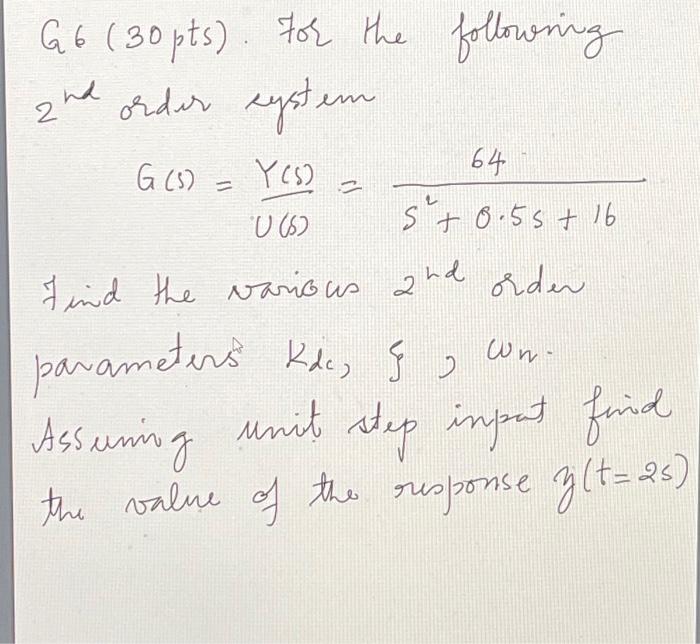 G6 (30 pts). For the following
2nd order system
G(s) = Y(s)/U(s) = 64/(s² + 0.5s + 16)
Find the various 2nd order
parameters Kdc, ξ, ωn.
Assuming unit step input find
the value of the response y(t=2s)